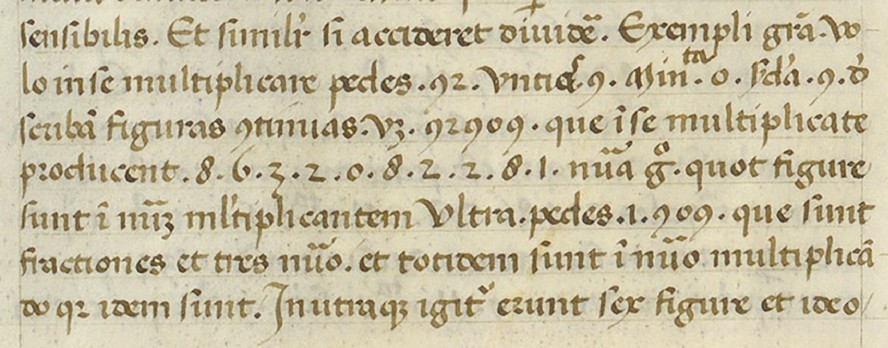 sensibilis. Et similr̃ si accideret diuidẽ. Exempli grã. Vo
lo in se multiplicare pedes .92. .9. Min.ta 0. .9. d'
scribã figuras ꝯtinuas. Vꝫ. 92909. que ĩ se multiplicate
producent. 8. 6. 3. 2. 0. 8. 2. 2. 8. 1. nũa gͦ. quot figure
sunt ĩ nũꝫ ml'tiplicantem Vltra. pedes .1. 909. que sunt
fractiones et tres nũo. et totidem sunt ĩ nũo multiplicã
do qꝛ idem sunt. In utraqꝫ igit' erunt sex figure et ideo